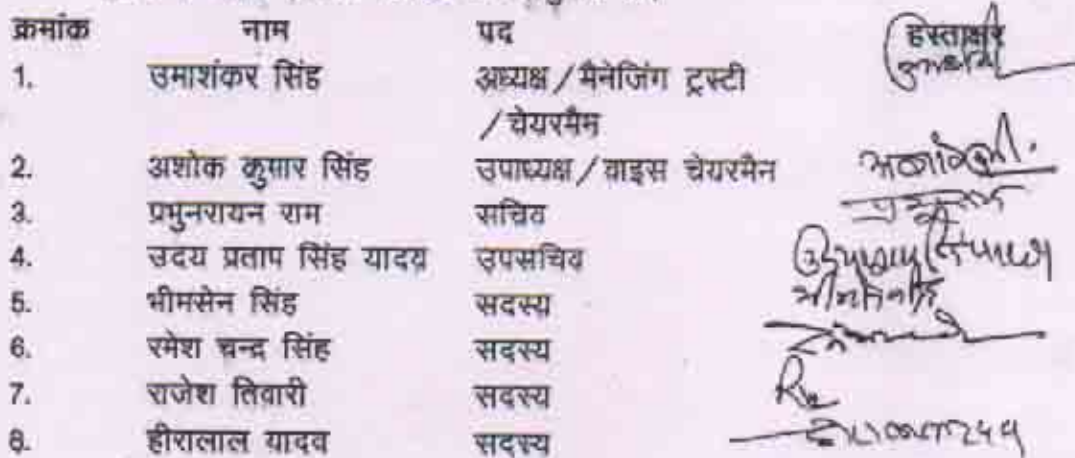 क्रमांक नाम पद हस्ताक्षर
1. उमाशंकर सिंह अध्यक्ष/मैनेजिंग ट्रस्टी
/चेयरमैन
2. अशोक कुमार सिंह उपाध्यक्ष/वाइस चेयरमैन
3. प्रभुनरायन राम सचिव
4. उदय प्रताप सिंह यादव उपसचिव
5. भीमसेन सिंह सदस्य
6. रमेश चन्द्र सिंह सदस्य
7. राजेश तिवारी सदस्य
8. हीरालाल यादव सदस्य